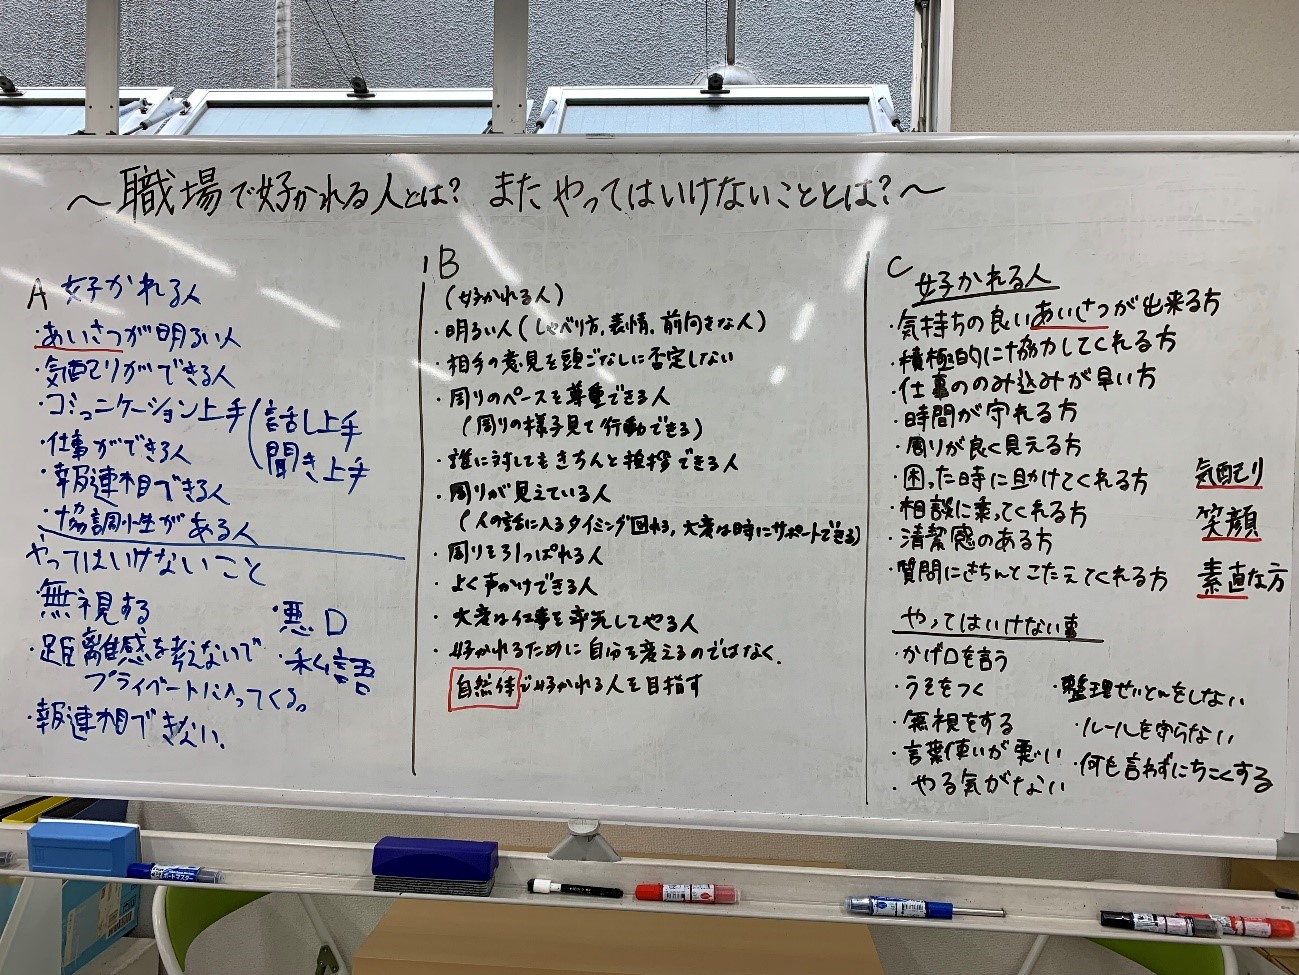 ～職場で好かれる人とは？ また やってはいけないこととは？～
A 好かれる人
・あいさつが明るい人
・気配りができる人
・コミュニケーション上手(話し上手
聞き上手
・仕事ができる人
・報連相できる人
・協調性がある人
やってはいけないこと
・無視する
・悪口
・距離感を考えないで
プライベートに入ってくる。
・私語
・報連相できない。
B
(好かれる人)
・明るい人(しゃべり方、表情、前向きな人)
・相手の意見を頭ごなしに否定しない
・周りのペースを尊重できる人
(周りの様子見て行動できる)
・誰に対してもきちんと挨拶できる人
・周りが見えている人
(人の話に入るタイミング図れる、大変な時にサポートできる)
・周りを引っぱれる人
・よく声かけできる人
・大変な仕事を率先してやる人
・好かれるために自分を変えるのではなく、
自然体で好かれる人を目指す
C
好かれる人
・気持ちの良いあいさつが出来る方
・積極的に協力してくれる方
・仕事ののみ込みが早い方
・時間が守れる方
・周りが良く見える方
・困った時に助けてくれる方
・相談に乗ってくれる方
・清潔感のある方
・質問にきちんとこたえてくれる方
気配り
笑顔
素直な方
やってはいけない事
・かげ口を言う
・うそをつく
・無視をする
・言葉使いが悪い
・やる気がない
・整理せいとんをしない
・ルールを守らない
・何も言わずにちこくする
ボードマスター